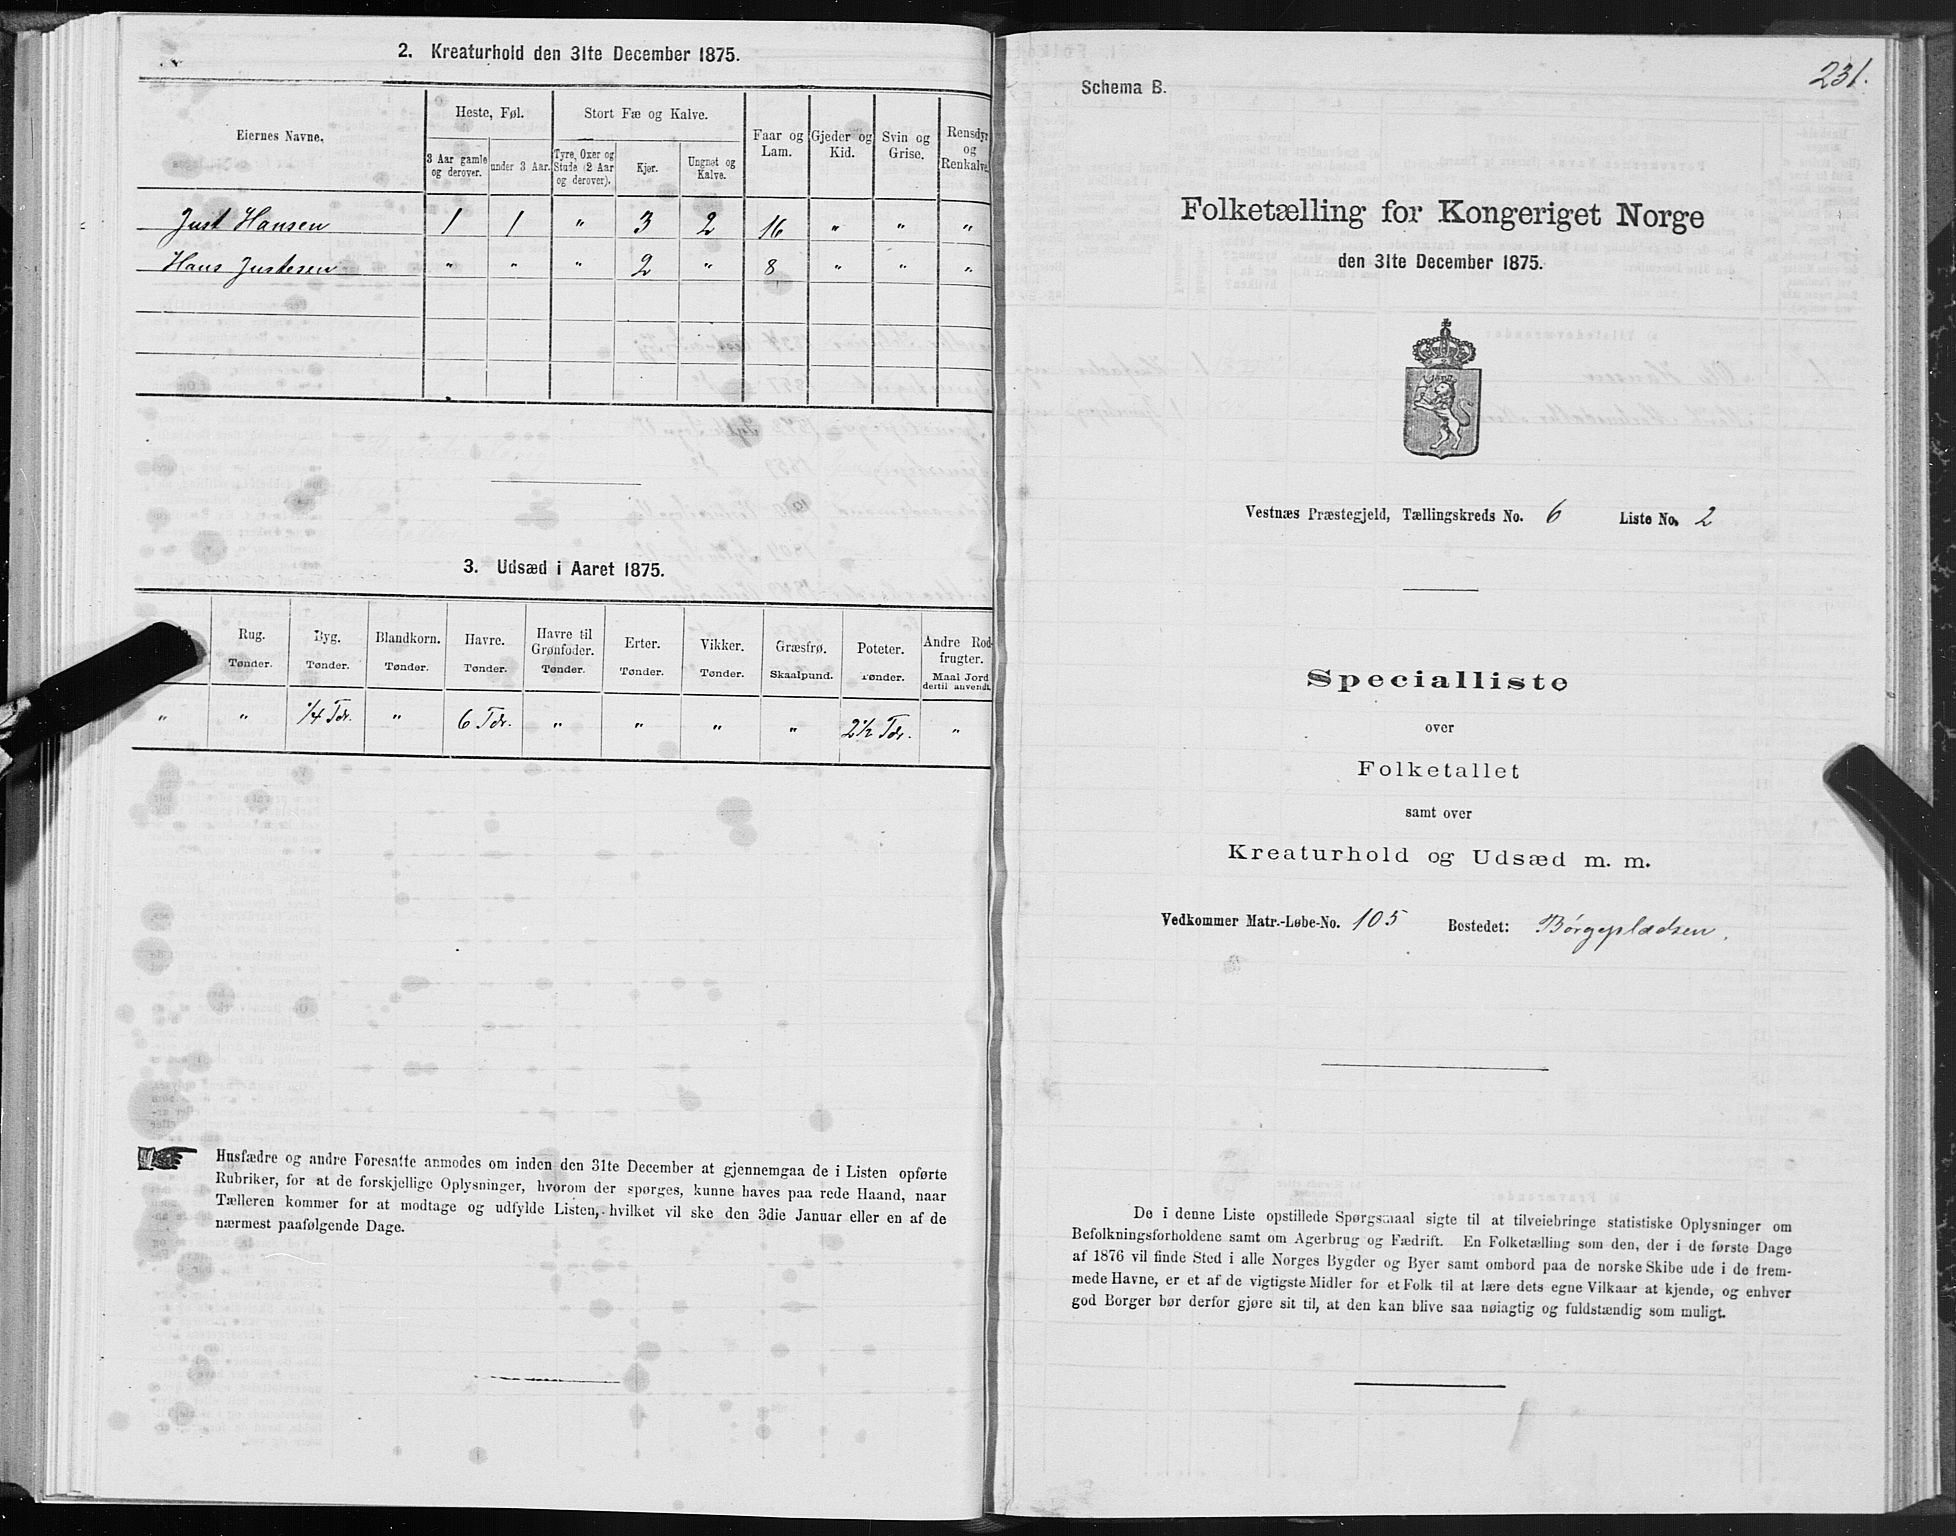 2. Kreaturhold den 31te December 1875.
Eiernes Navne.
Heste, Føl.
Stort Fæ og Kalve.
Faar og Lam.
Gjeder og Kid.
Svin og Grise.
Rensdyr og Renkalve.
3 Aar gamle og derover.
under 3 Aar.
Tyre, Oxer og Stude (2 Aar og derover).
Kjør.
Ungnøt og Kalve.
Just Hansen 1 1 " 3 2 16 " " "
Hans Justesen " " " 2 " 8 " " "
3. Udsæd i Aaret 1875.
Rug. Byg. Blandkorn. Havre. Havre til Grønfoder. Erter. Vikker. Græsfrø. Poteter. Andre Rodfrugter.
Tønder. Tønder. Tønder. Tønder. Tønder. Tønder. Tønder. Skaalpund. Tønder. Maal Jord dertil anvendt.
" " 1/4 Tdr. " 6 Tdr. " " " " 2 1/2 Tdr. "
Husfædre og andre Foresatte anmodes om inden den 31te December at gjennemgaa de i Listen opførte
Rubriker, for at de forskjellige Oplysninger, hvorom der spørges, kunne haves paa rede Haand, naar
Tælleren kommer for at modtage og udfylde Listen, hvilket vil ske den 3die Januar eller en af de
nærmest paafølgende Dage.
231.
Schema B.
Folketælling for Kongeriget Norge
den 31te December 1875.
Vestnæs Præstegjeld, Tællingskreds No. 6 Liste No. 2
Specialliste
over
Folketallet
samt over
Kreaturhold og Udsæd m. m.
Vedkommer Matr.-Løbe-No. 105 Bostedet: Børgepladsen.
De i denne Liste opstillede Spørgsmaal sigte til at tilveiebringe statistiske Oplysninger om
Befolkningsforholdene samt om Agerbrug og Fædrift. En Folketælling som den, der i de første Dage
af 1876 vil finde Sted i alle Norges Bygder og Byer samt ombord paa de norske Skibe ude i de frem-
mede Havne, er et af de vigtigste Midler for et Folk til at lære dets egne Vilkaar at kjende, og enhver
god Borger bør derfor gjøre sit til, at den kan blive saa nøiagtig og fuldstændig som muligt.